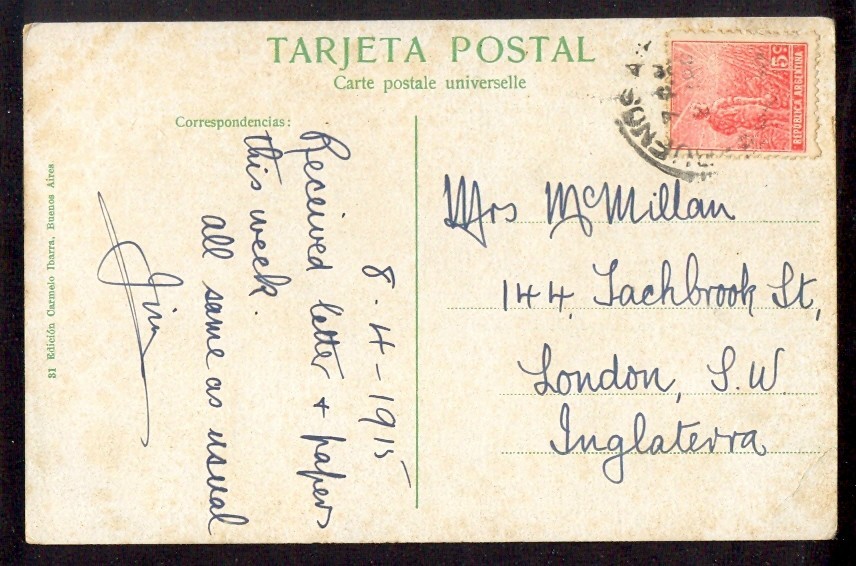 TARJETA POSTAL
Carte postale universelle
Correspondencias:
8-4-1915
Received letter + papers
this week.
all same as usual
Jim
31 Edición Carmelo Ibarra, Buenos Aires
5c
REPUBLICA ARGENTINA
BUENOS A
Mrs McMillan
144, Tachbrook St,
London, S.W.
Inglaterra